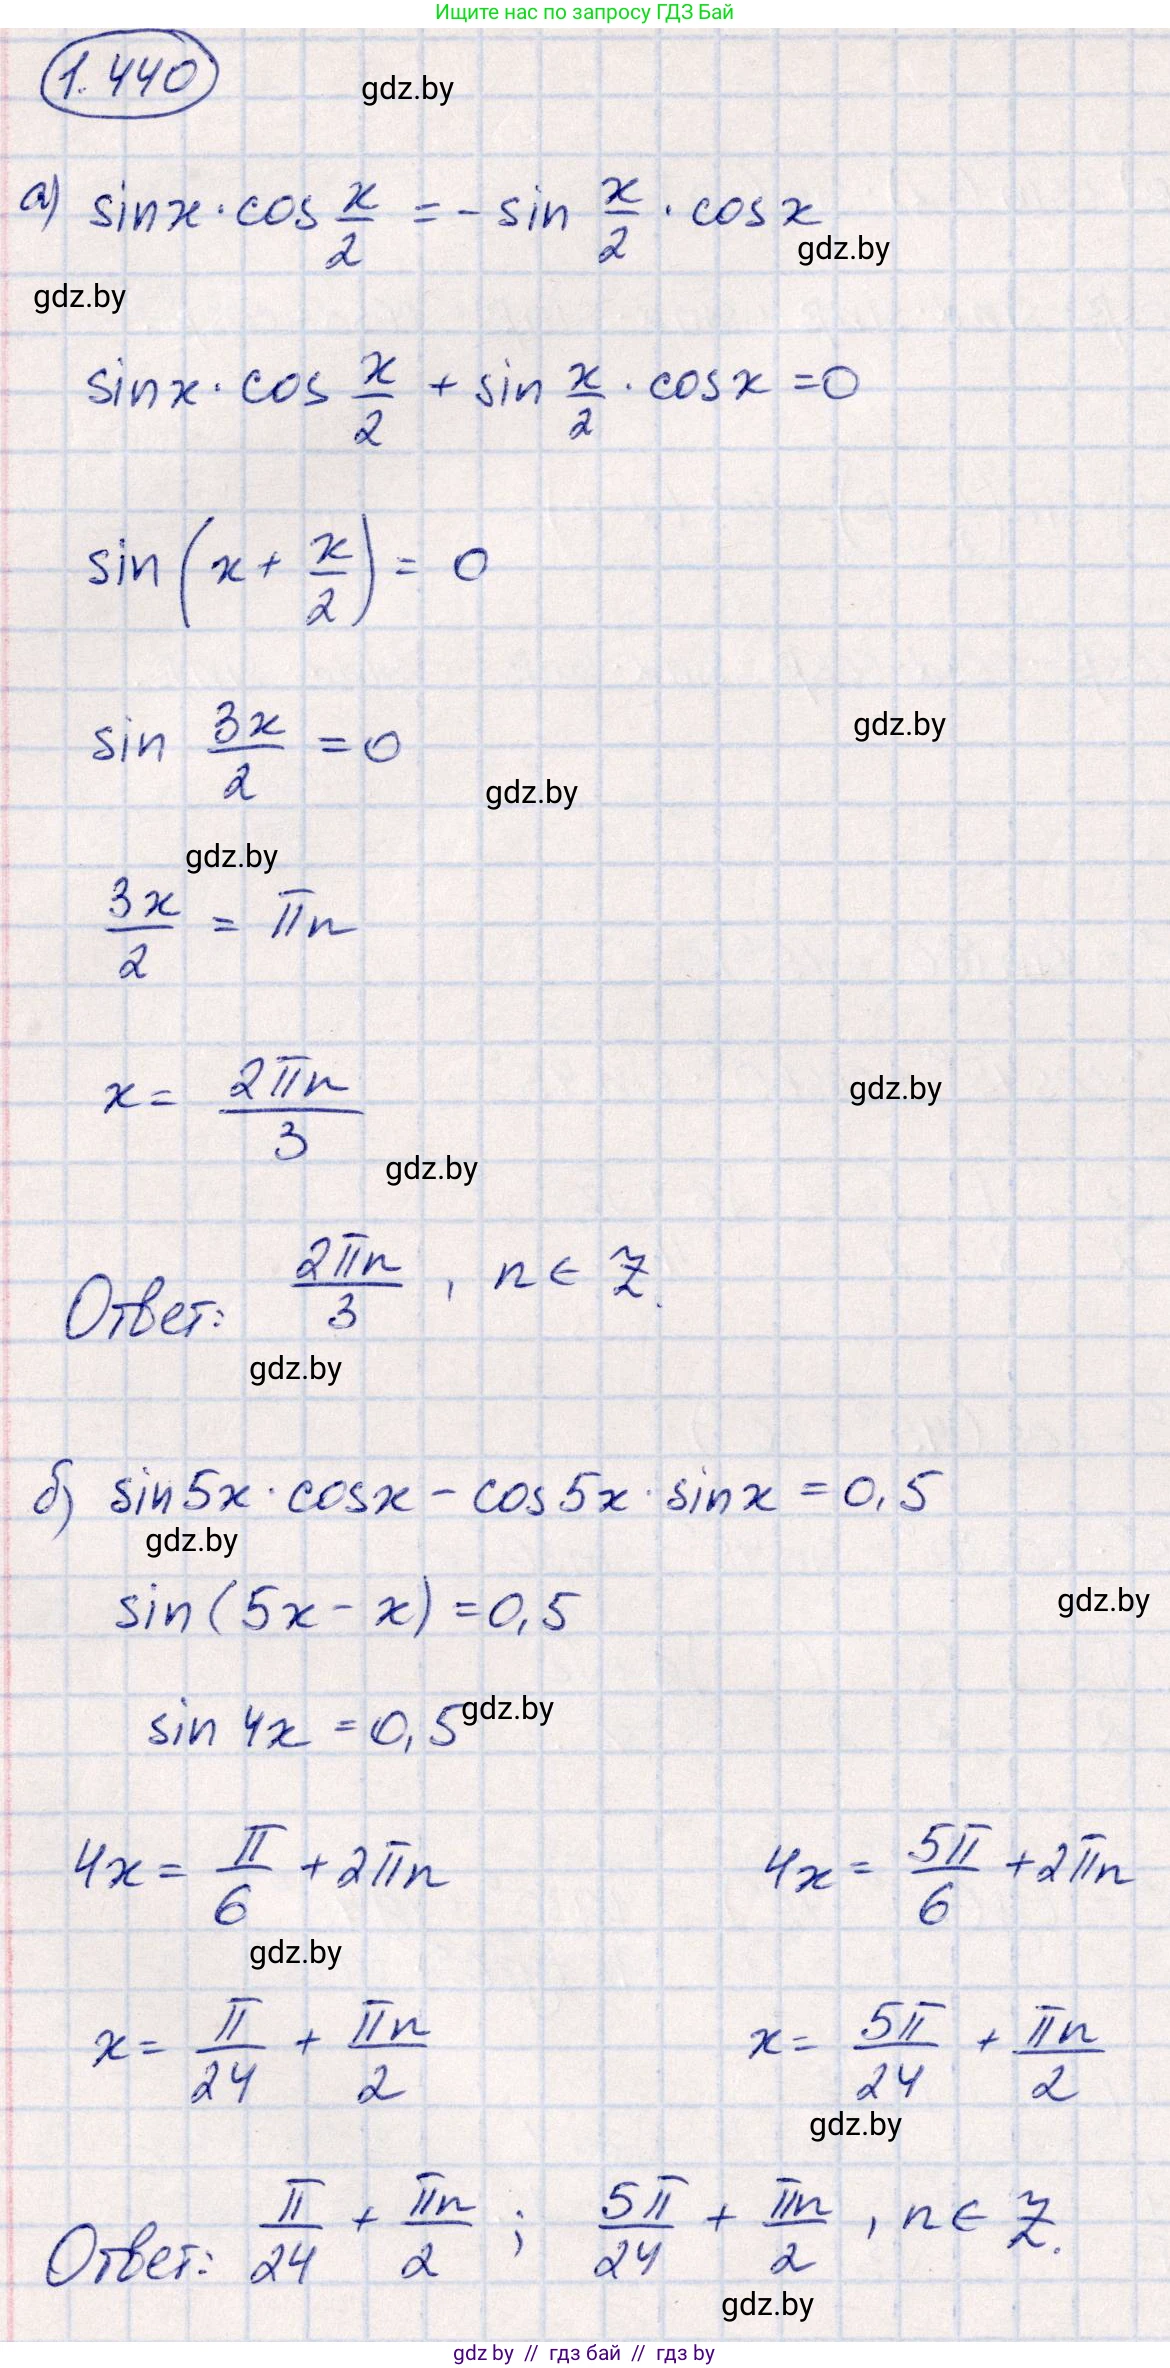 Ищите нас по запросу ГДЗ Бай
1.440
gdz.by
а) sinx · cos x/2 = - sin x/2 · cosx
gdz.by
gdz.by
sinx · cos x/2 + sin x/2 · cosx = 0
sin (x + x/2) = 0
gdz.by
sin 3x/2 = 0
gdz.by
gdz.by
3x/2 = πn
x = 2πn/3
gdz.by
gdz.by
Ответ: 2πn/3 , n ∈ Z.
gdz.by
б) sin5x · cosx - cos5x · sinx = 0,5
gdz.by
sin(5x - x) = 0,5
gdz.by
sin 4x = 0,5
gdz.by
4x = π/6 + 2πn 4x = 5π/6 + 2πn
gdz.by
x = π/24 + πn/2 x = 5π/24 + πn/2
gdz.by
Ответ: π/24 + πn/2 ; 5π/24 + πn/2 , n ∈ Z.
gdz.by
gdz.by // gdz бай // гдз by